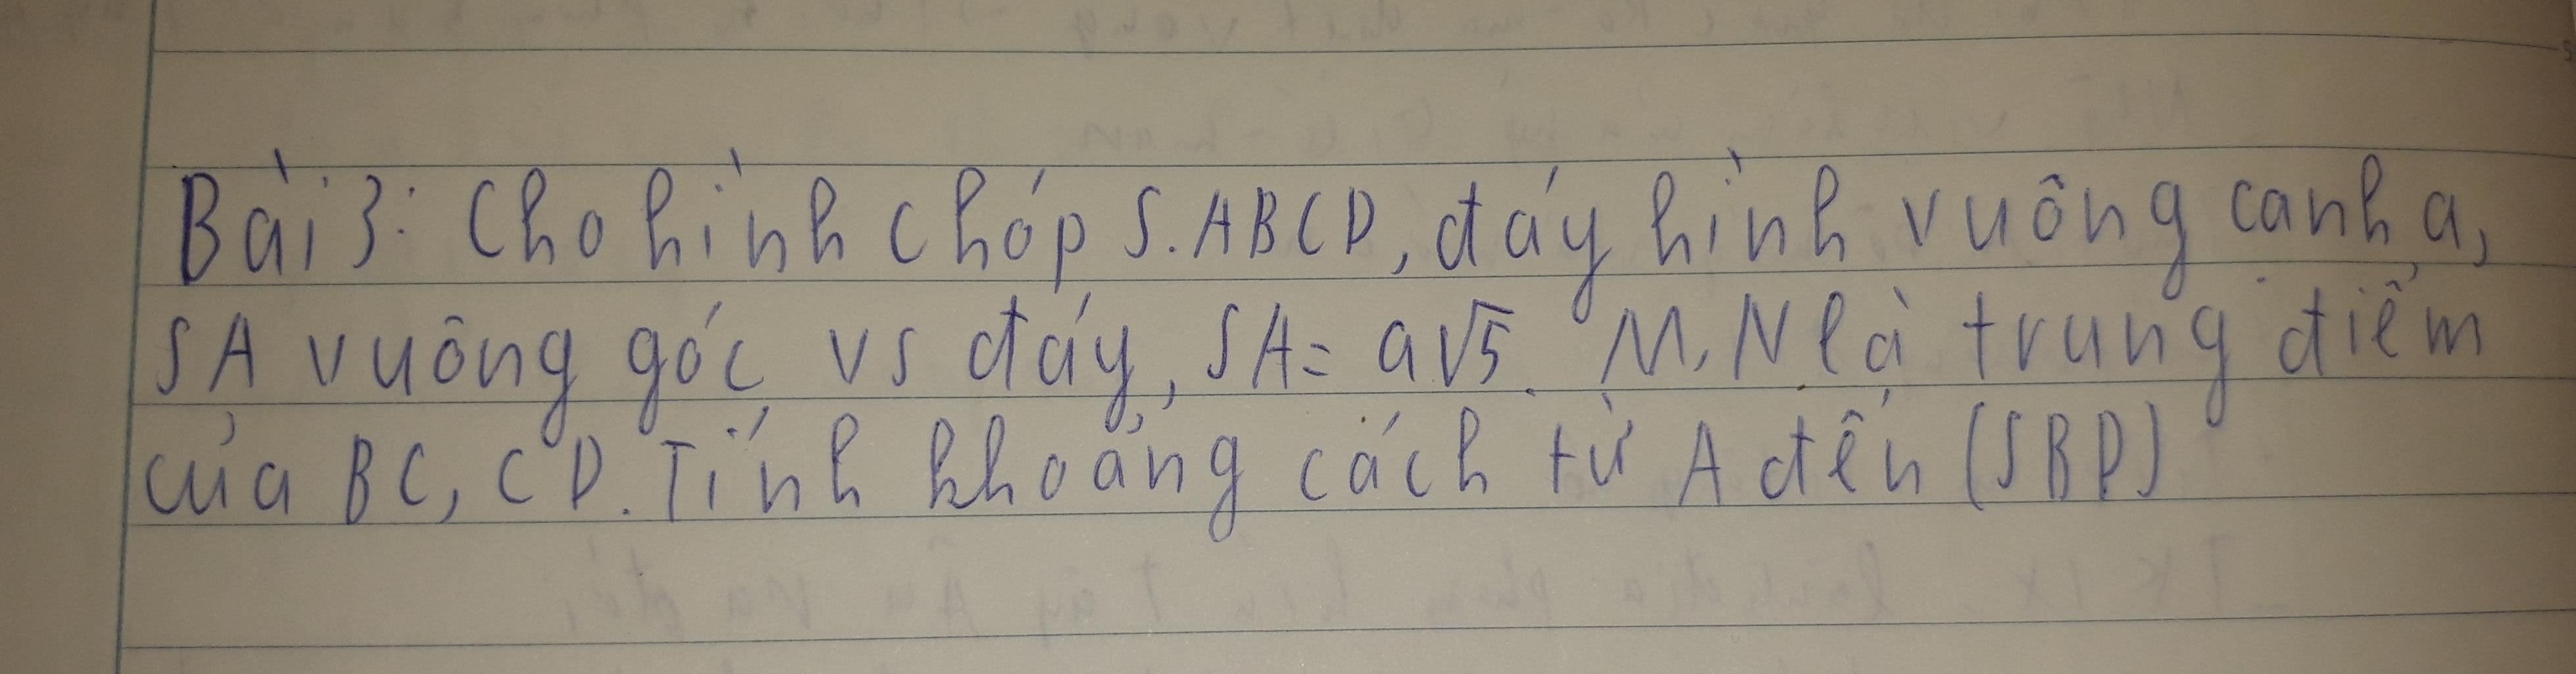 Bài 3: Cho hình chóp S.ABCD, đáy hình vuông cạnh a,
SA vuông góc vs đáy, SA = a√5. M, N là trung điểm
của BC, CD. Tính khoảng cách từ A đến (SBD)